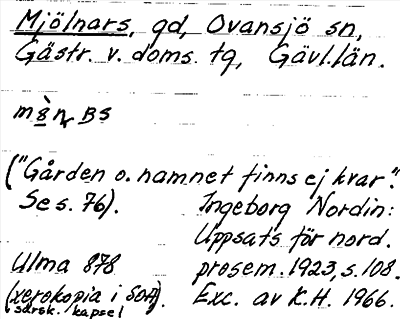 Mjölnars, gd, Ovansjö sn,
Gästr. v. doms. tg, Gävl.län.
BS
("Gården o. namnet finns ej kvar".
Se s. 76).
Ingeborg Nordin:
Uppsats för nord.
prosem. 1923, s. 108.
Exc. av K.H. 1966.
Ulma 878
(xerokopia i SOA).
särsk. kapsel